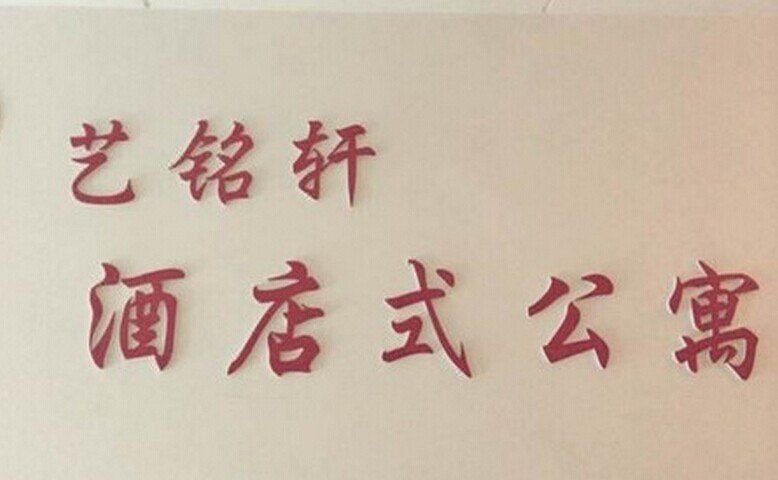 艺铭轩
酒店式公寓